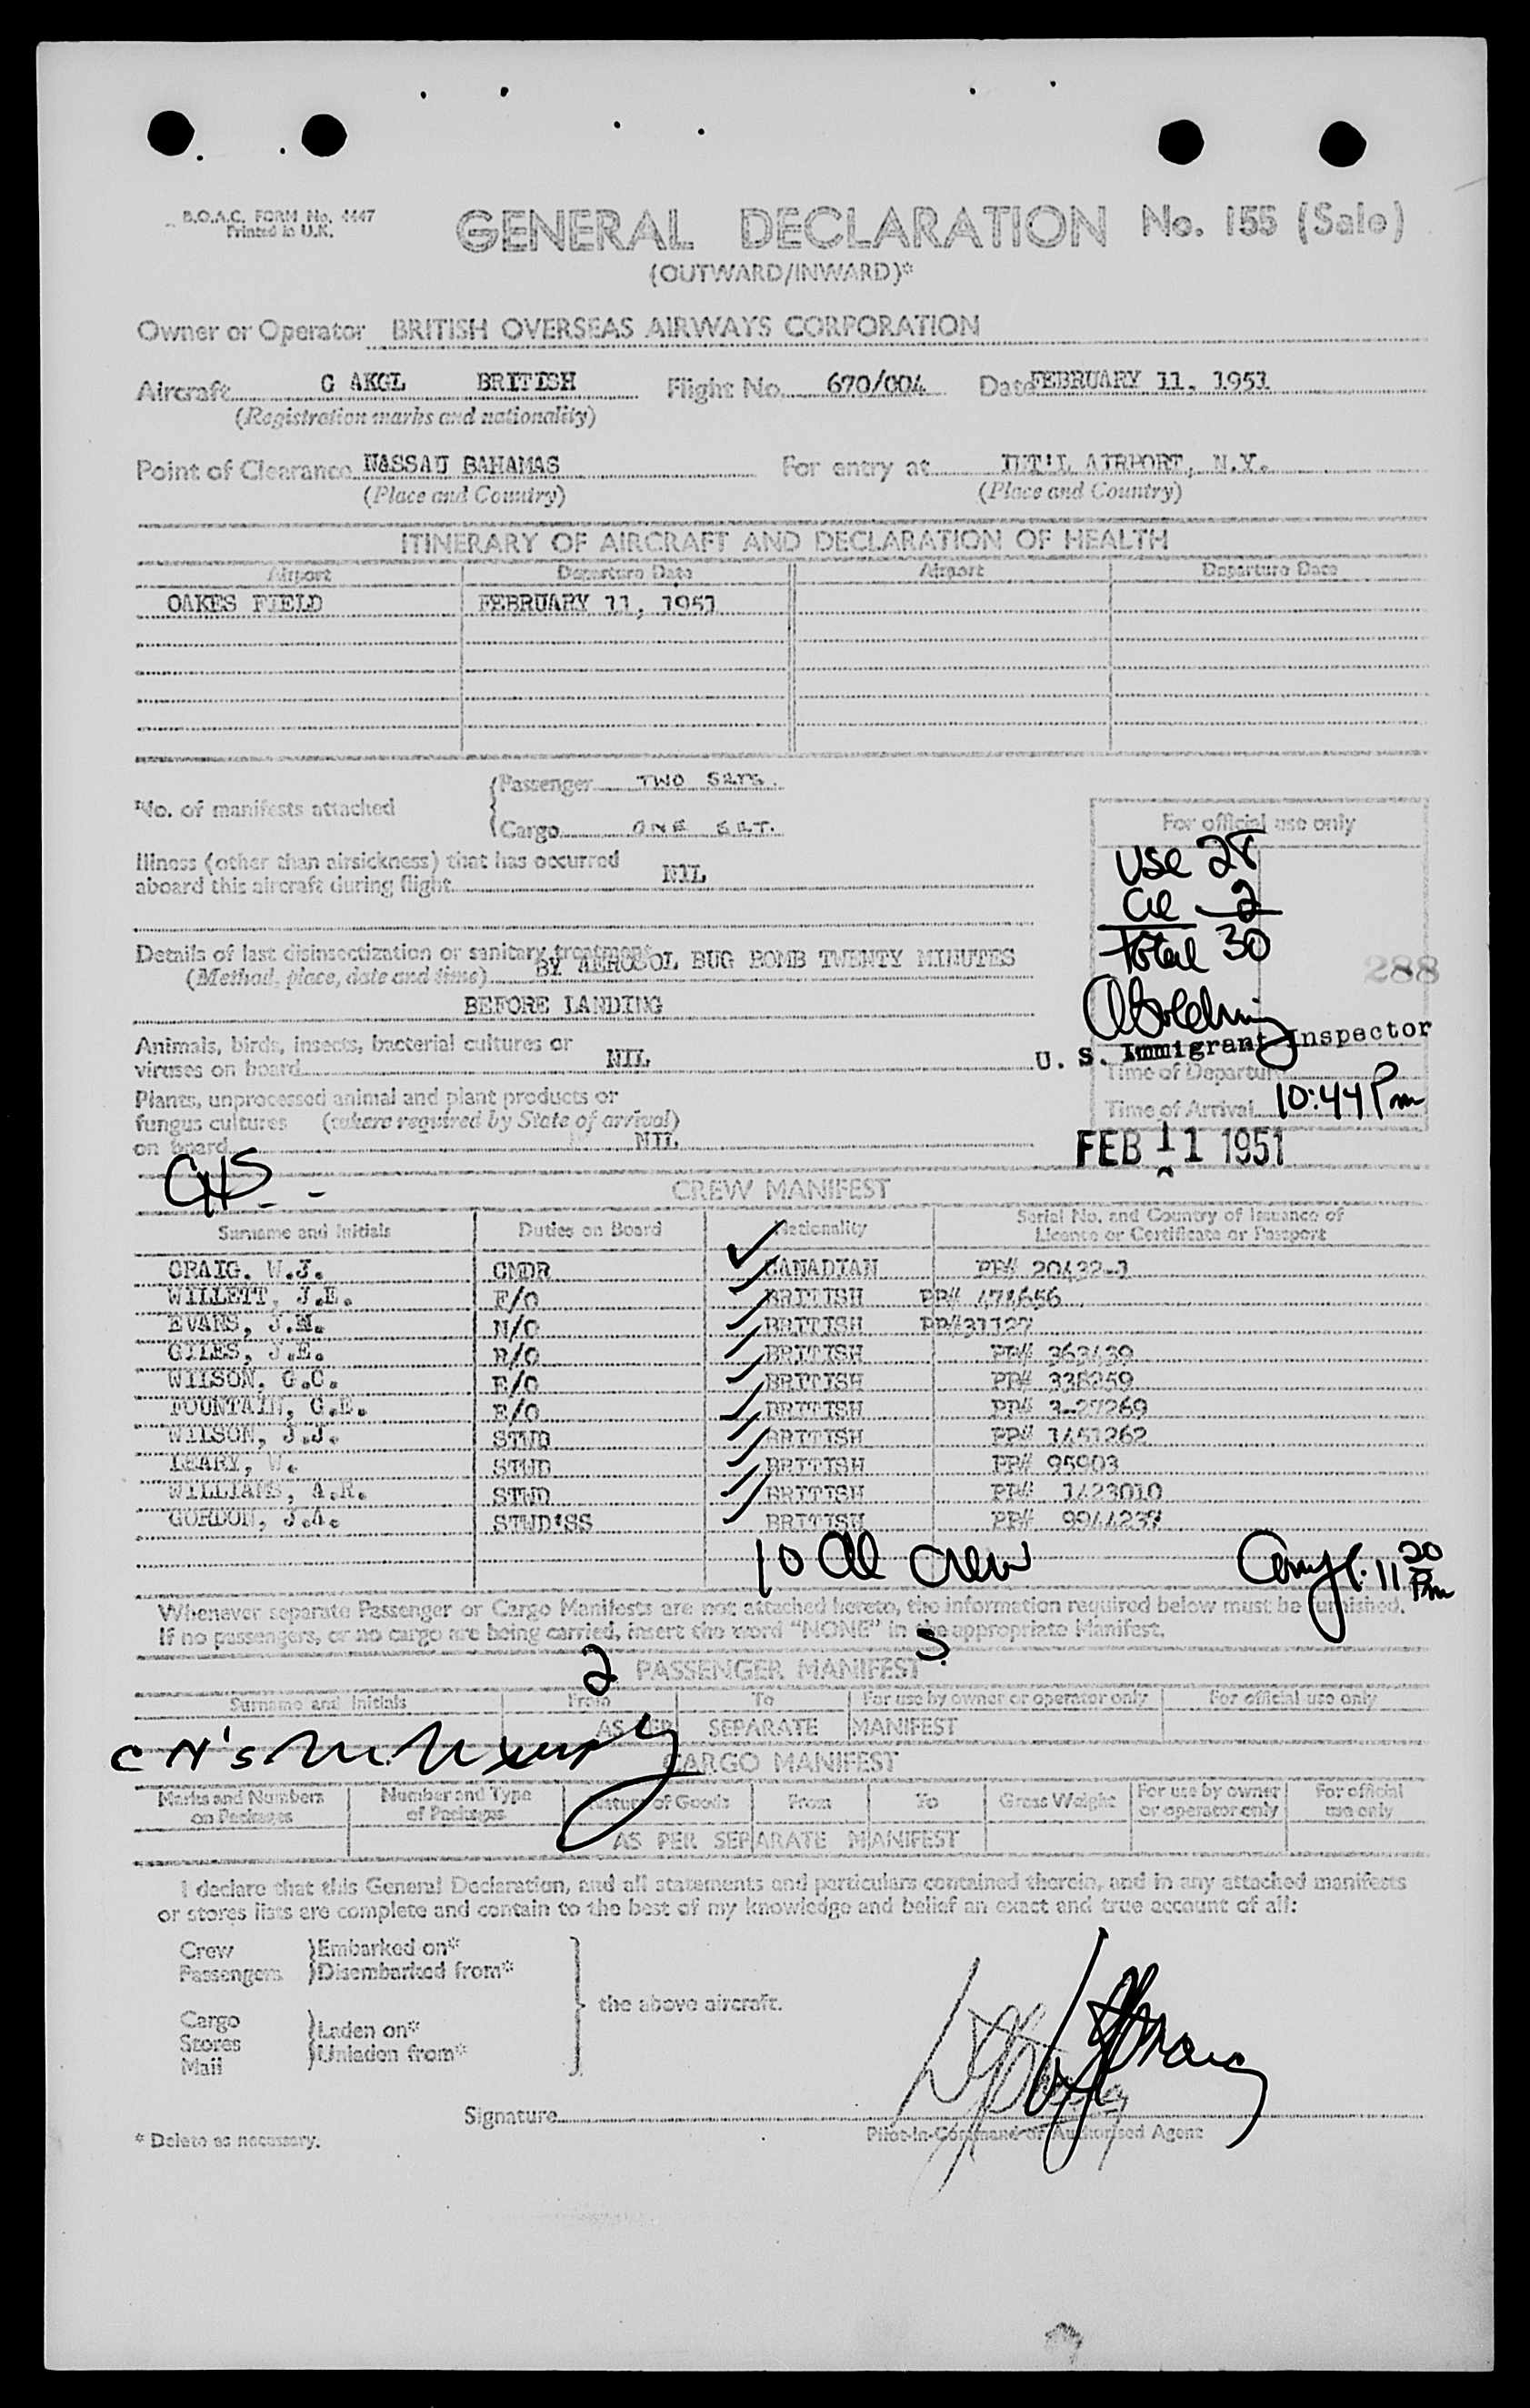 B.O.A.C. FORM No. 4447
Printed in U.K.
GENERAL DECLARATION No. 155 (Sale)
(OUTWARD/INWARD)*
Owner or Operator BRITISH OVERSEAS AIRWAYS CORPORATION
Aircraft G AKGL BRITISH Flight No. 670/004 Date FEBRUARY 11, 1951
(Registration marks and nationality)
Point of Clearance NASSAU BAHAMAS For entry at INT'L AIRPORT, N.Y.
(Place and Country) (Place and Country)
ITINERARY OF AIRCRAFT AND DECLARATION OF HEALTH
Airport Departure Date Airport Departure Date
OAKES FIELD FEBRUARY 11, 1951
*No. of manifests attached
Passenger TWO SETS.
Cargo ONE SET.
For official use only
Illness (other than airsickness) that has occurred
aboard this aircraft during flight NIL
USC 28
al 2
Total 30
Details of last disinsectization or sanitary treatment
(Method, place, date and time) BY AEROSOL BUG BOMB TWENTY MINUTES
BEFORE LANDING
288
Animals, birds, insects, bacterial cultures or
viruses on board NIL
U. S. Immigrant Inspector
Time of Departure
Plants, unprocessed animal and plant products or
fungus cultures (where required by State of arrival)
on board NIL
Time of Arrival 10:44 Pm
FEB 11 1951
CREW MANIFEST
Surname and Initials Duties on Board Nationality Serial No. and Country of Issuance of
Licence or Certificate or Passport
CRAIG. W.J. CMDR CANADIAN PP# 20432-1
WILLETT, J.E. F/O BRITISH PP# 474656
EVANS, J.M. N/O BRITISH PP#31127
GILES, J.E. R/O BRITISH PP# 363439
WILSON, G.C. E/O BRITISH PP# 338259
FOUNTAIN, G.E. E/O BRITISH PP# 3-27269
WILSON, J.J. STWD BRITISH PP# 1451262
LEARY, W. STWD BRITISH PP# 95903
WILLIAMS, A.R. STWD BRITISH PP# 1423010
GORDON, J.A. STWD'SS BRITISH PP#
10 al crew 11 20 Pm
Whenever separate Passenger or Cargo Manifests are not attached hereto, the information required below must be furnished.
If no passengers, or no cargo are being carried, insert the word "NONE" in the appropriate Manifest.
2 PASSENGER MANIFEST S.
Surname and Initials From To For use by owner or operator only For official use only
AS PER SEPARATE MANIFEST
CARGO MANIFEST
Marks and Numbers on Packages Number and Type of Packages Nature of Goods From To Gross Weight For use by owner or operator only For official use only
AS PER SEPARATE MANIFEST
I declare that this General Declaration, and all statements and particulars contained therein, and in any attached manifests
or stores lists are complete and contain to the best of my knowledge and belief an exact and true account of all:
Crew Embarked on*
Passengers Disembarked from*
the above aircraft.
Cargo
Stores Laden on*
Mail Unladen from*
Signature
Pilot-in-Command or Authorised Agent
* Delete as necessary.